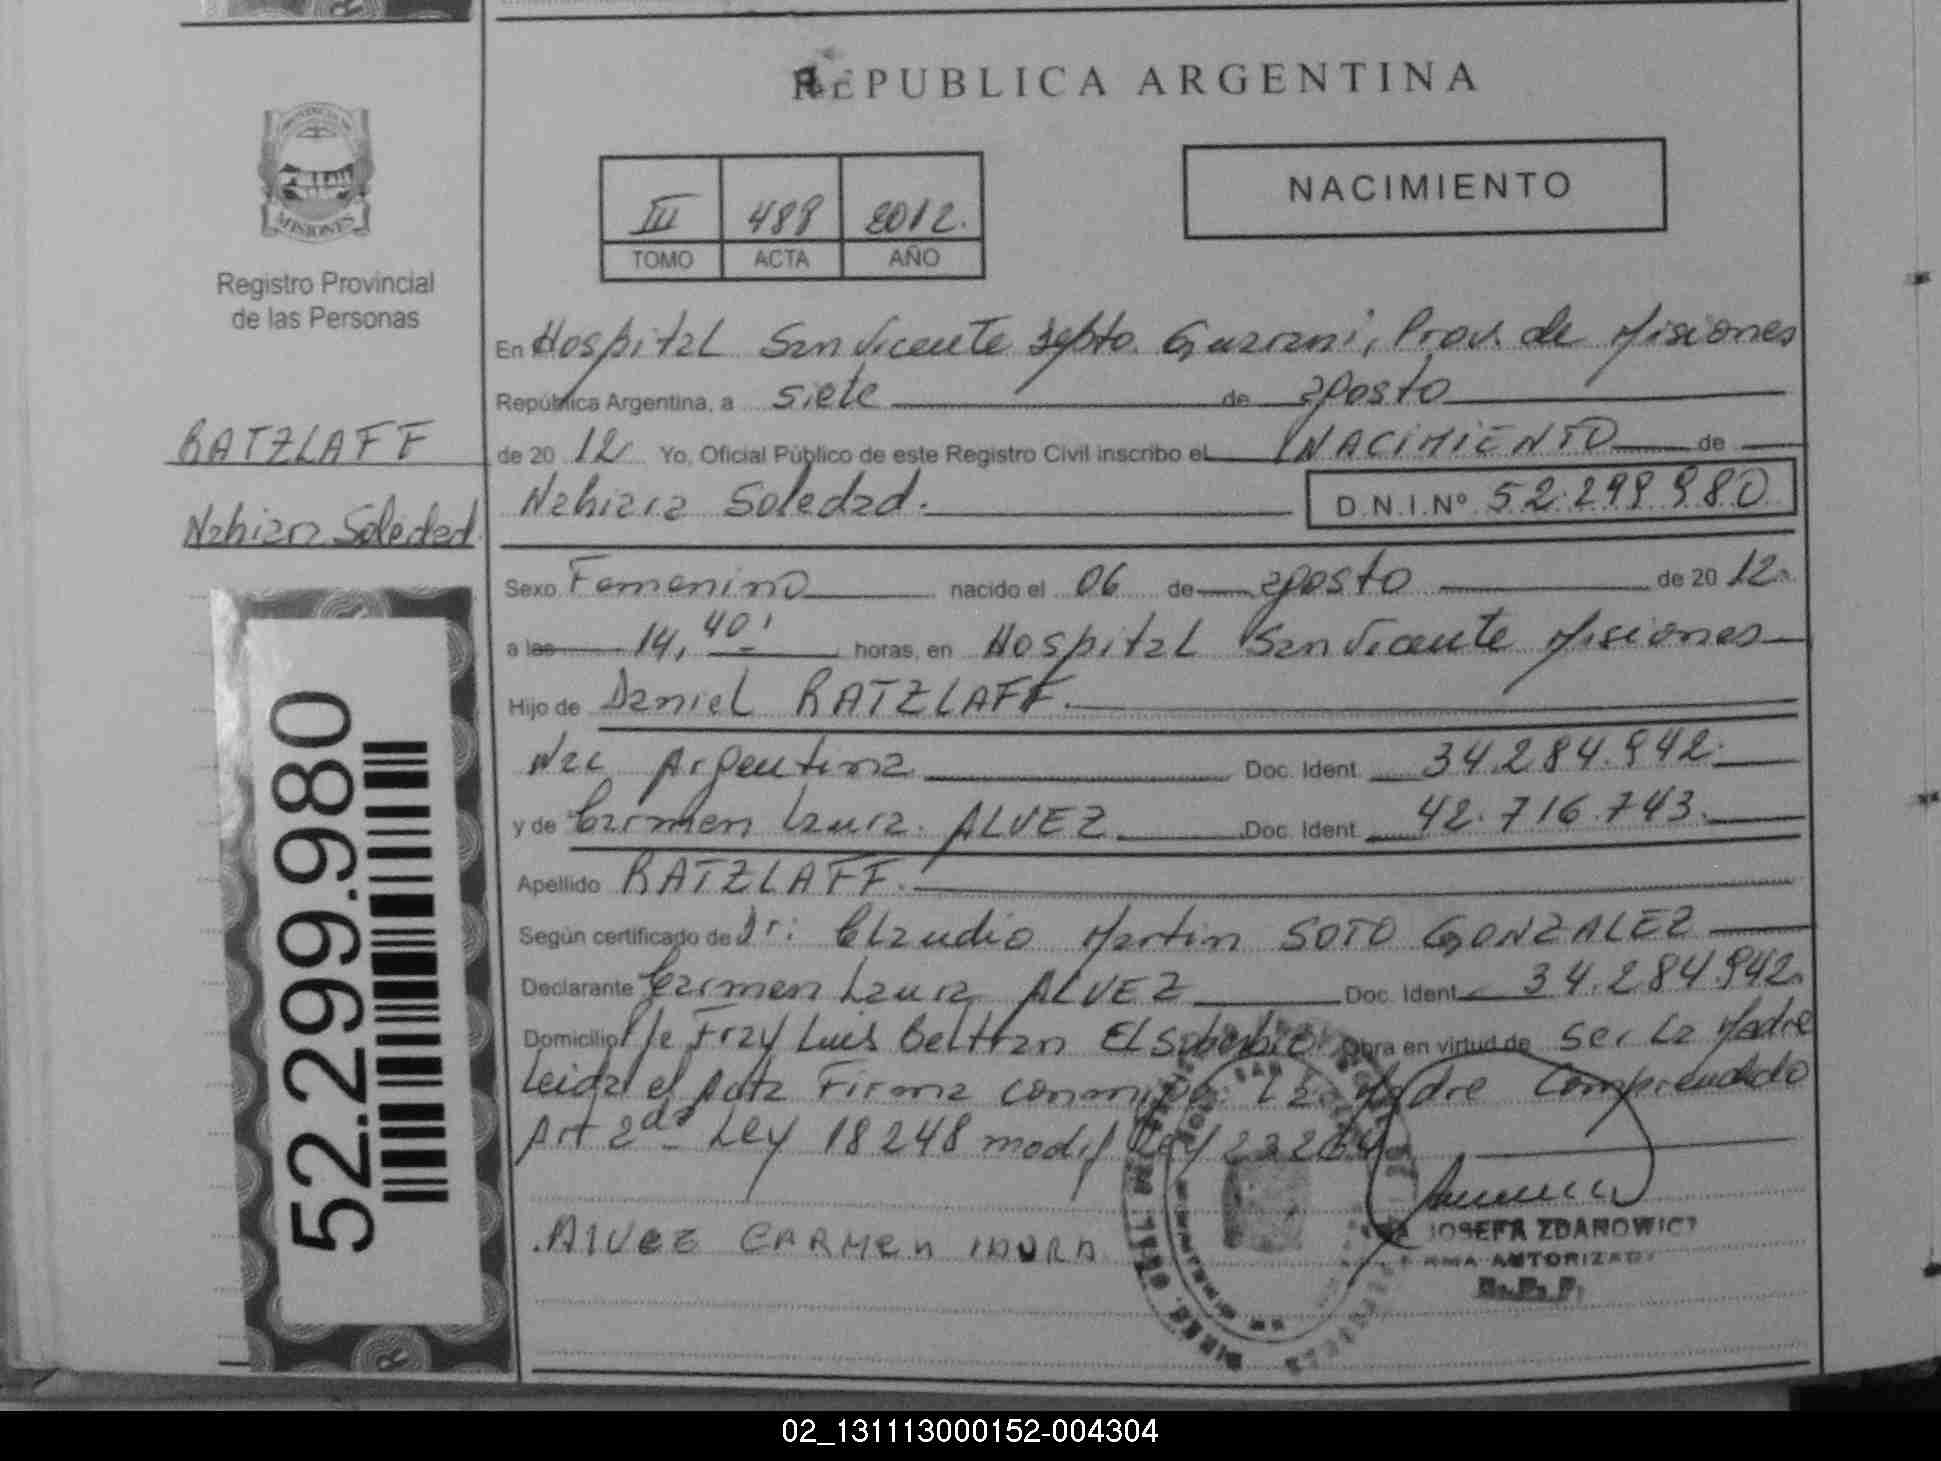 REPUBLICA ARGENTINA
NACIMIENTO
III 488 2012.
TOMO ACTA AÑO
PROVINCIA DE
MISIONES
Registro Provincial
de las Personas
RATZLAFF
Nahiara Soledad
52.299.980
En Hospital San Vicente depto. Guarani, Prov. de Misiones
República Argentina, a siete de agosto
de 20 12 Yo, Oficial Público de este Registro Civil inscribo el NACIMIENTO de
Nahiara Soledad. D.N.I.Nº 52.299.980
Sexo Femenino nacido el 06 de agosto de 20 12
a las 14, 40' horas, en Hospital San Vicente Misiones
Hijo de Daniel RATZLAFF.
Nac Argentina Doc. Ident 34.284.942.
y de Carmen Laura ALVEZ Doc. Ident 42.716.743.
Apellido RATZLAFF.
Según certificado de Dr: Claudio Martin SOTO GONZALEZ
Declarante Carmen Laura ALVEZ Doc. Ident 34.284.942.
Domicilio Fray Luis Beltran El Soberbio Obra en virtud de ser la Madre
Leida el Acta Firma conmigo La Madre Comprendido
Art 2do Ley 18248 modif Ley
ALVEZ CARMEN LAURA
JOSEFA ZDANOWICZ
FIRMA AUTORIZADA
02_131113000152-004304